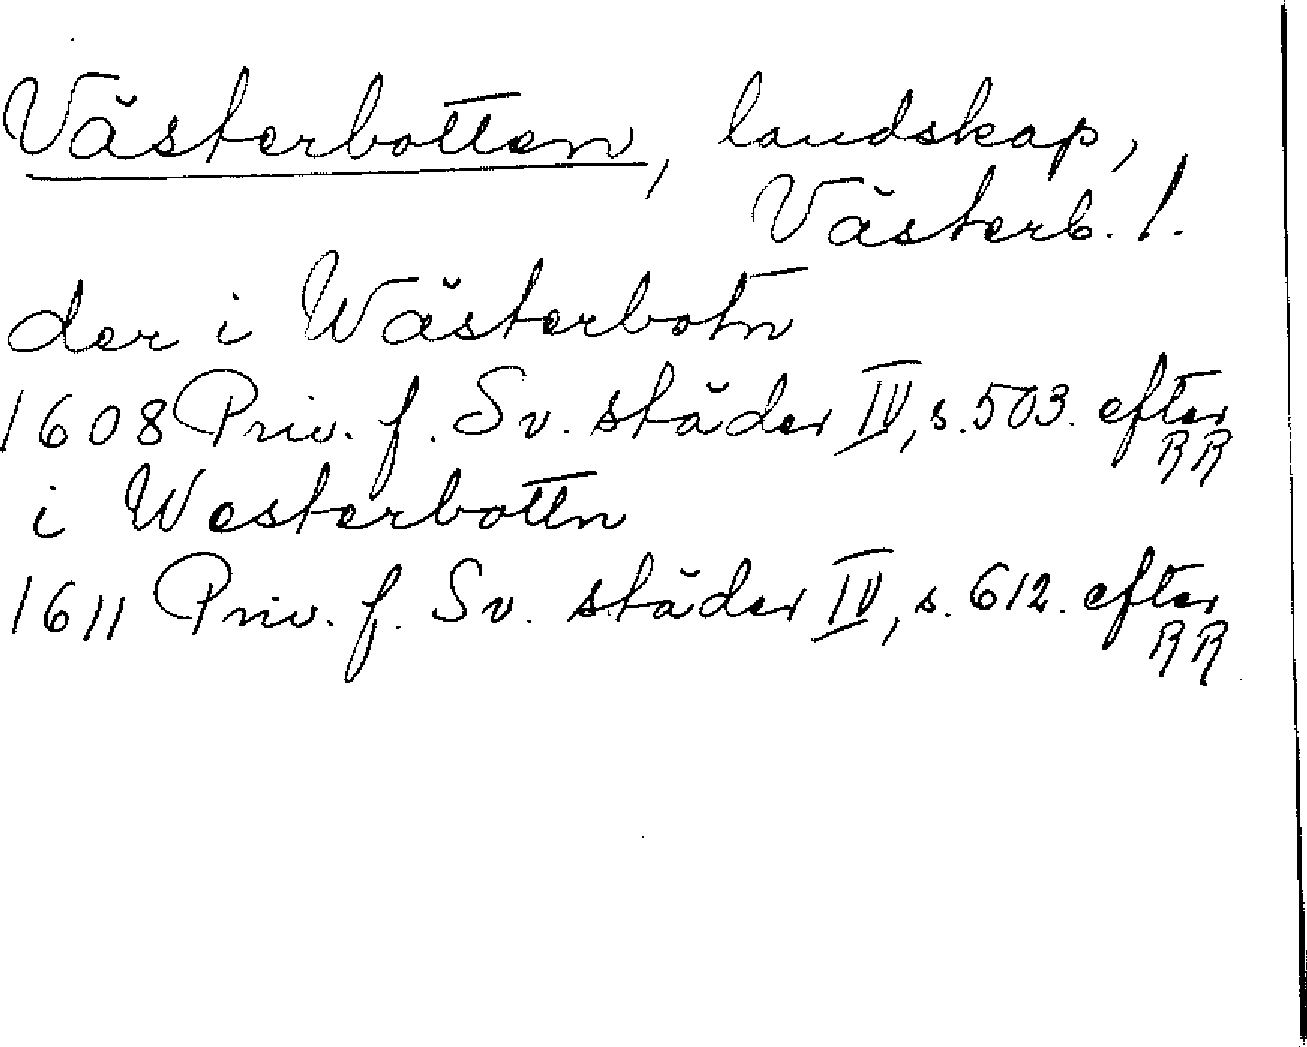 Västerbotten, landskap,
Västerb. l.
der i Wästerbotn
1608 Priv. f. Sv. städer IV, s. 503. efter RR
i Westerbottn
1611 Priv. f. Sv. städer IV, s. 612. efter RR